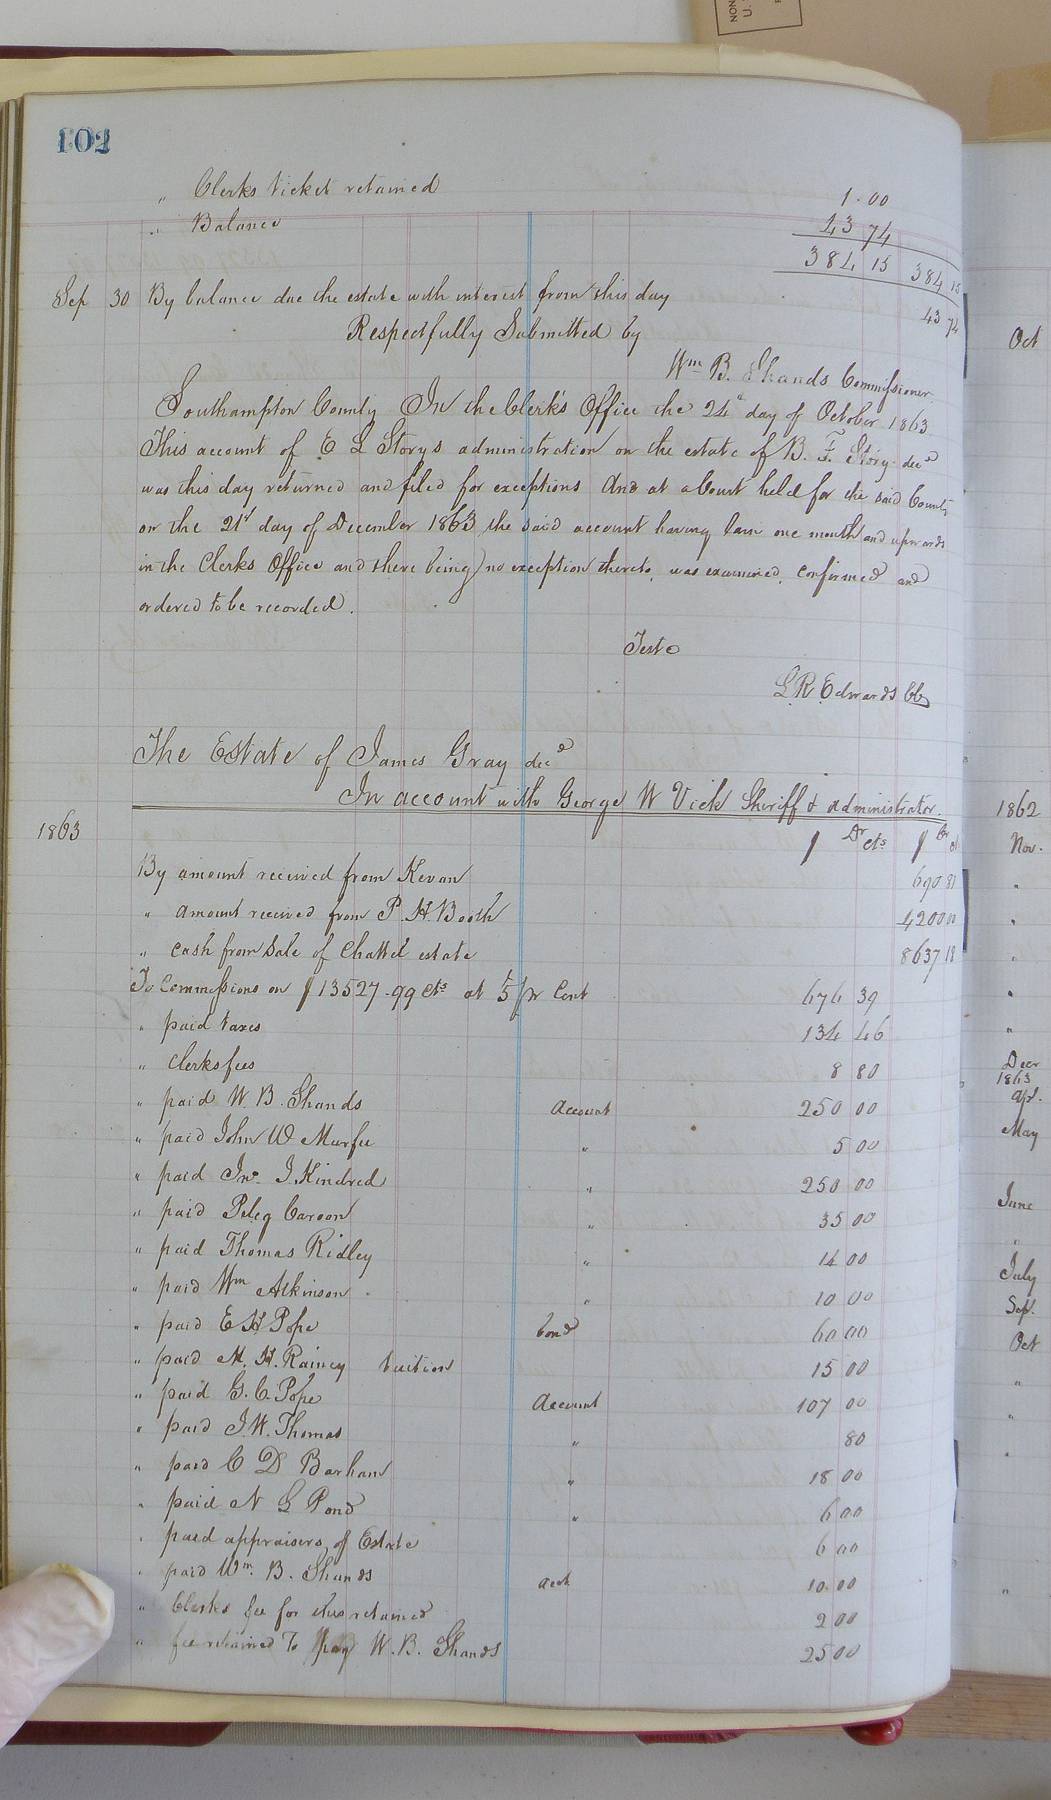 102
" Clerks ticket retained 1.00
" Balance 43 74
384 15 384 15
Sep 30 By balance due the estate with interest from this day 43 74
Respectfully Submitted by
Wm B. Shands Commissioner
Southampton County In the Clerk's Office the 24th day of October 1863
This account of E L Storys administration on the estate of B. F. Story decd
was this day returned and filed for exceptions And at a Court held for the said County
on the 21st day of December 1863 the said account having lain one month and upwards
in the Clerks Office and there being no exception thereto, was examined, confirmed and
ordered to be recorded.
Teste
L. R. Edwards CC
The Estate of James Gray decd
In account with George W Vick Sheriff & administrator.
1863 $ Dr cts $ Cr ct
By amount received from Kevan 690 81
" amount received from P. H. Booth 4200 00
" cash from Sale of Chattel estate 8637 18
To Commissions on $13527.99 cts at 5 pr Cent 676 39
" paid taxes 134 46
" Clerks fees 8 80
" paid W. B. Shands Account 250 00
" paid John W Murfee " 5 00
" paid Jno. J. Kindred " 250 00
" paid Peleg " 35 00
" paid Thomas Ridley " 14 00
" paid Wm Atkinson " 10 00
" paid E H Pope bond 60 00
" paid M. H. Rainey tuition 15 00
" paid G. C. Pope Account 107 00
" paid J. W. Thomas " 80
" paid C D Barham " 18 00
" paid N L Pond " 6 00
" paid appraisers of Estate 6 00
" paid Wm. B. Shands acct 10.00
" Clerks fee for this retained 2 00
" fee retained To pay W. B. Shands 25 00
Oct
1862
Nov.
"
"
"
"
"
Decr
1863
Apl.
May
June
"
July
Sep.
Oct
"
"
"
"